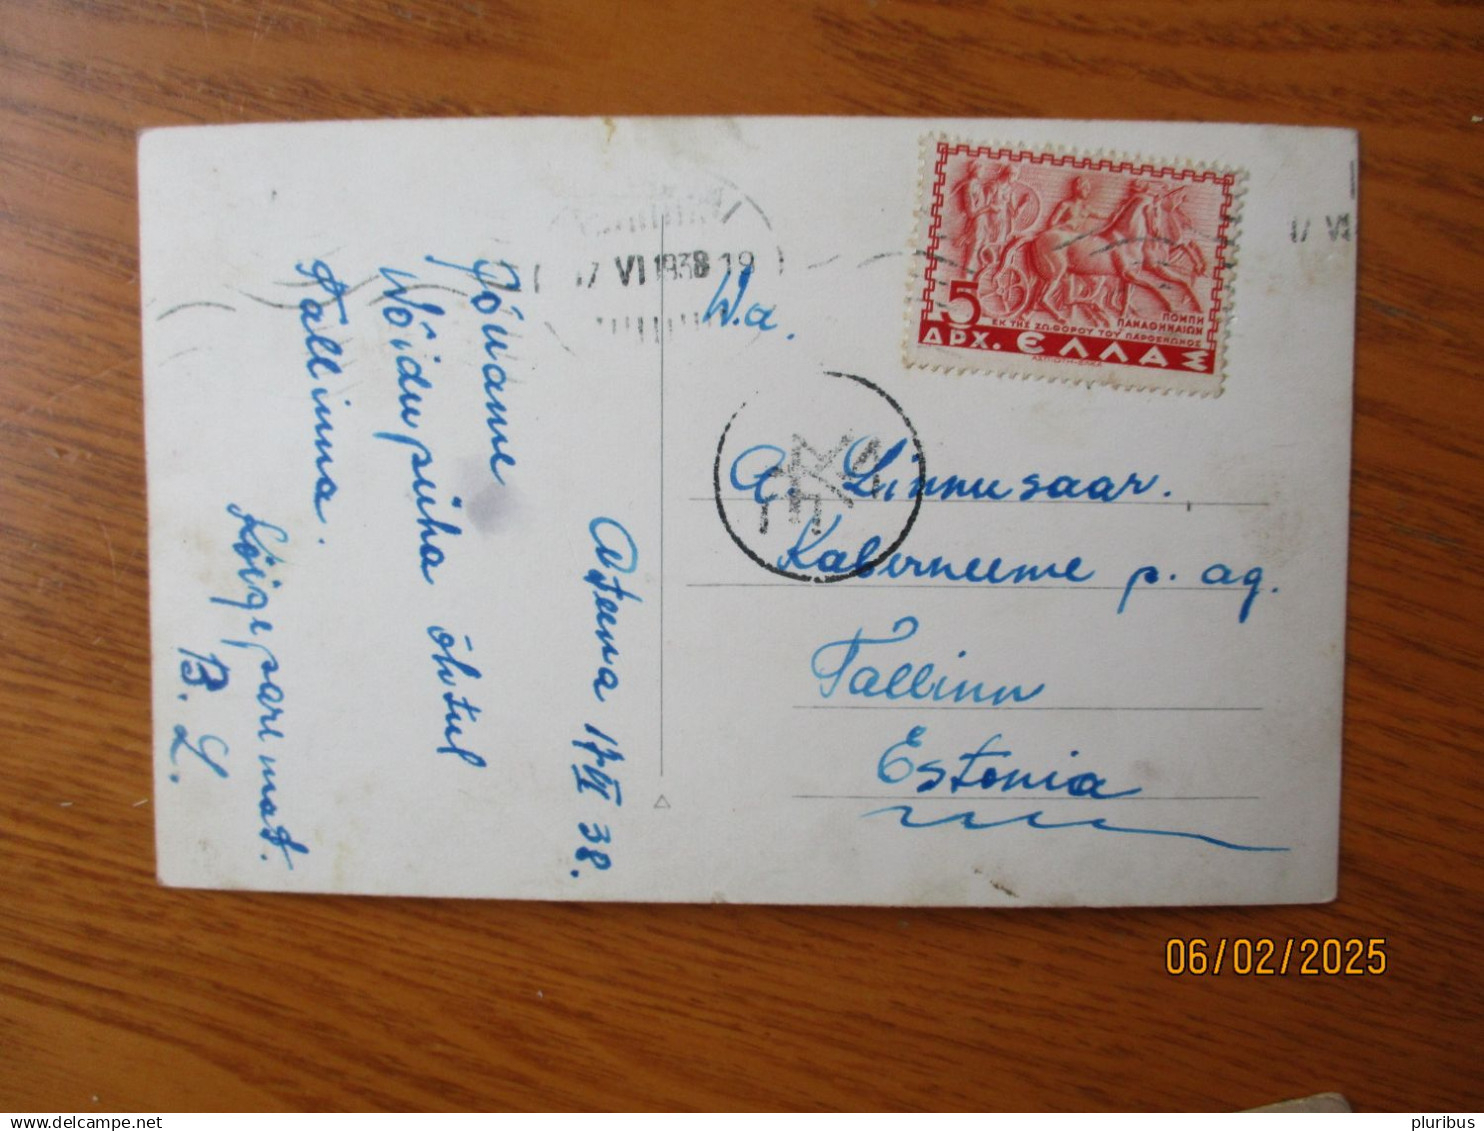 Ateena 17 VI 38.
Jõuame
Wõidupüha õhtul
Tallinna.
Kõige paremat.
B. L.
17 VI 1938 19
17 VI
5
ΠΟΜΠΗ
ΠΑΝΑΘΗΝΑΙΩΝ
ΕΚ ΤΗΣ ΖΩΦΟΡΟΥ ΤΟΥ ΠΑΡΘΕΝΩΝΟΣ
ΔΡΧ. ΕΛΛΑΣ
W.a.
A. Linnusaar.
Kaberneeme p. ag.
Tallinn
Estonia
06/02/2025
pluribus